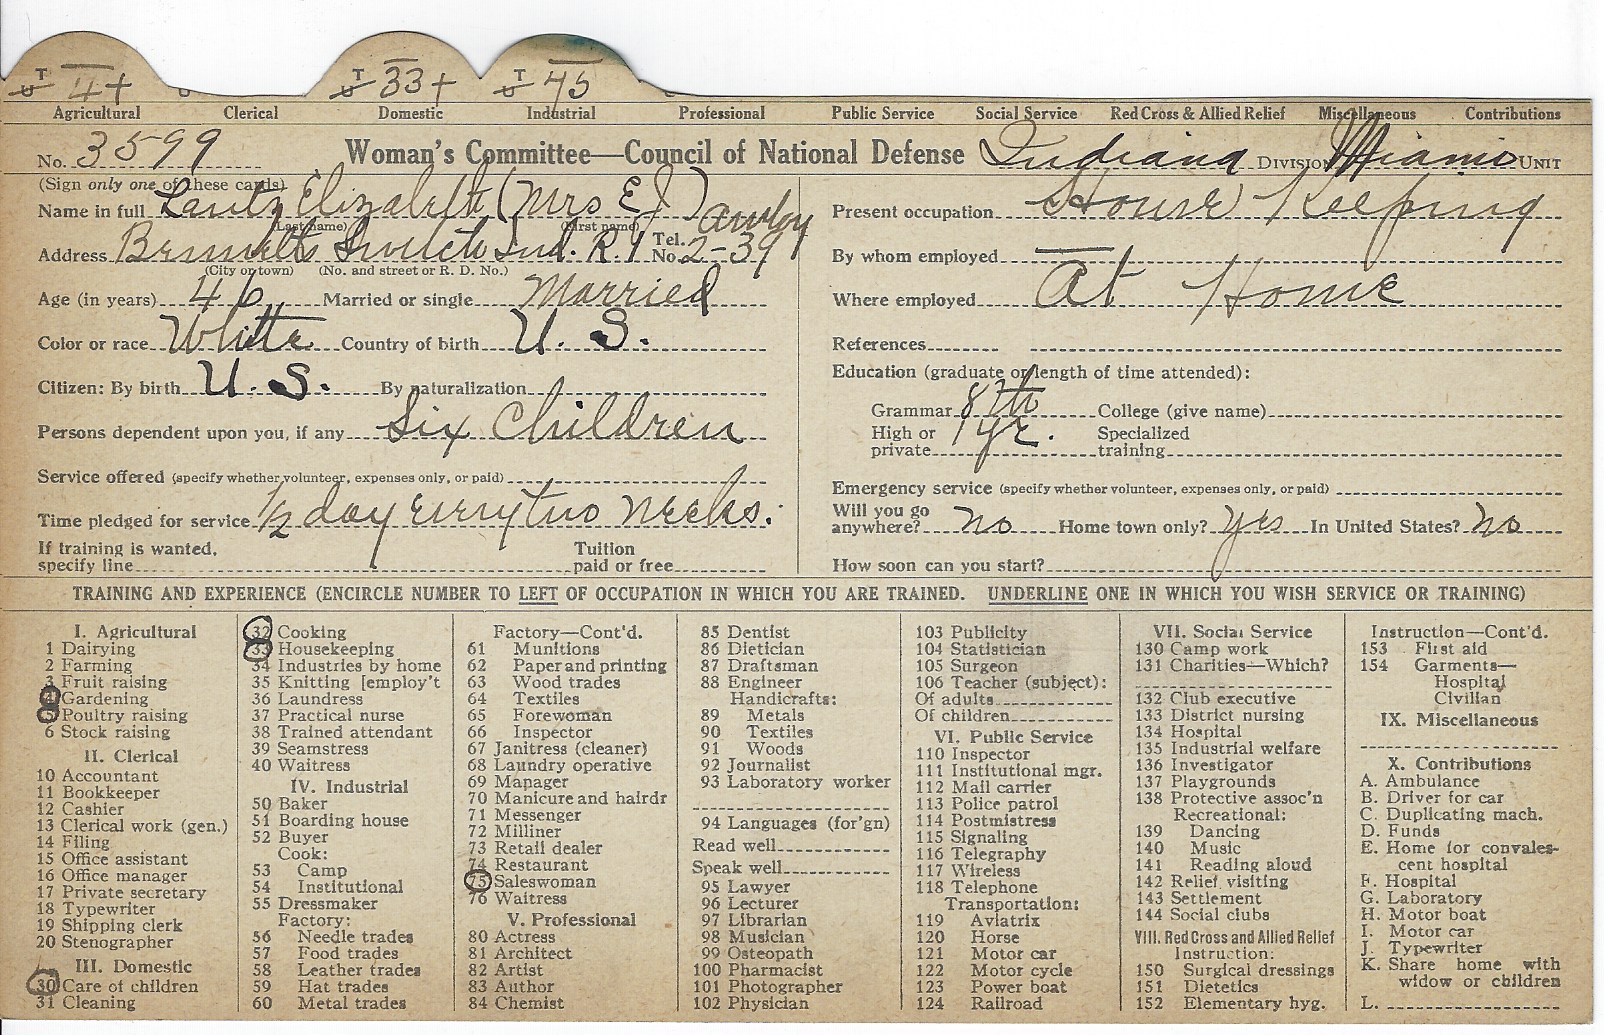 T U 4+ T U 33+ T U 75
Agricultural Clerical Domestic Industrial Professional Public Service Social Service Red Cross & Allied Relief Miscellaneous Contributions
No. 3599 Woman's Committee—Council of National Defense Indiana DIVISION Miami UNIT
(Sign only one of these cards)
Name in full Lantz Elizabeth (Mrs E J)
(Last name) (First name)
Address Bennetts Switch Ind. R. 1 Tel. No. 2-39
(City or town) (No. and street or R. D. No.)
Age (in years) 46 Married or single Married
Color or race White Country of birth U. S.
Citizen: By birth U. S. By naturalization
Persons dependent upon you, if any Six Children
Service offered (specify whether volunteer, expenses only, or paid)
Time pledged for service 1/2 day every two weeks.
If training is wanted, specify line Tuition paid or free
Present occupation House Keeping
By whom employed —
Where employed At Home
References
Education (graduate or length of time attended):
Grammar 8th College (give name)
High or private 1 yr. Specialized training
Emergency service (specify whether volunteer, expenses only, or paid)
Will you go anywhere? no Home town only? yes In United States? no
How soon can you start?
TRAINING AND EXPERIENCE (ENCIRCLE NUMBER TO LEFT OF OCCUPATION IN WHICH YOU ARE TRAINED. UNDERLINE ONE IN WHICH YOU WISH SERVICE OR TRAINING)
I. Agricultural
1 Dairying
2 Farming
3 Fruit raising
4 Gardening
5 Poultry raising
6 Stock raising
II. Clerical
10 Accountant
11 Bookkeeper
12 Cashier
13 Clerical work (gen.)
14 Filing
15 Office assistant
16 Office manager
17 Private secretary
18 Typewriter
19 Shipping clerk
20 Stenographer
III. Domestic
30 Care of children
31 Cleaning
32 Cooking
33 Housekeeping
34 Industries by home
35 Knitting [employ't
36 Laundress
37 Practical nurse
38 Trained attendant
39 Seamstress
40 Waitress
IV. Industrial
50 Baker
51 Boarding house
52 Buyer
Cook:
53 Camp
54 Institutional
55 Dressmaker
Factory:
56 Needle trades
57 Food trades
58 Leather trades
59 Hat trades
60 Metal trades
Factory—Cont'd.
61 Munitions
62 Paper and printing
63 Wood trades
64 Textiles
65 Forewoman
66 Inspector
67 Janitress (cleaner)
68 Laundry operative
69 Manager
70 Manicure and hairdr
71 Messenger
72 Milliner
73 Retail dealer
74 Restaurant
75 Saleswoman
76 Waitress
V. Professional
80 Actress
81 Architect
82 Artist
83 Author
84 Chemist
85 Dentist
86 Dietician
87 Draftsman
88 Engineer
Handicrafts:
89 Metals
90 Textiles
91 Woods
92 Journalist
93 Laboratory worker
94 Languages (for'gn)
Read well
Speak well
95 Lawyer
96 Lecturer
97 Librarian
98 Musician
99 Osteopath
100 Pharmacist
101 Photographer
102 Physician
103 Publicity
104 Statistician
105 Surgeon
106 Teacher (subject):
Of adults
Of children
VI. Public Service
110 Inspector
111 Institutional mgr.
112 Mail carrier
113 Police patrol
114 Postmistress
115 Signaling
116 Telegraphy
117 Wireless
118 Telephone
Transportation:
119 Aviatrix
120 Horse
121 Motor car
122 Motor cycle
123 Power boat
124 Railroad
VII. Social Service
130 Camp work
131 Charities—Which?
132 Club executive
133 District nursing
134 Hospital
135 Industrial welfare
136 Investigator
137 Playgrounds
138 Protective assoc'n
Recreational:
139 Dancing
140 Music
141 Reading aloud
142 Relief visiting
143 Settlement
144 Social clubs
VIII. Red Cross and Allied Relief
Instruction:
150 Surgical dressings
151 Dietetics
152 Elementary hyg.
Instruction—Cont'd.
153 First aid
154 Garments—
Hospital
Civilian
IX. Miscellaneous
X. Contributions
A. Ambulance
B. Driver for car
C. Duplicating mach.
D. Funds
E. Home for convales-
cent hospital
F. Hospital
G. Laboratory
H. Motor boat
I. Motor car
J. Typewriter
K. Share home with
widow or children
L.